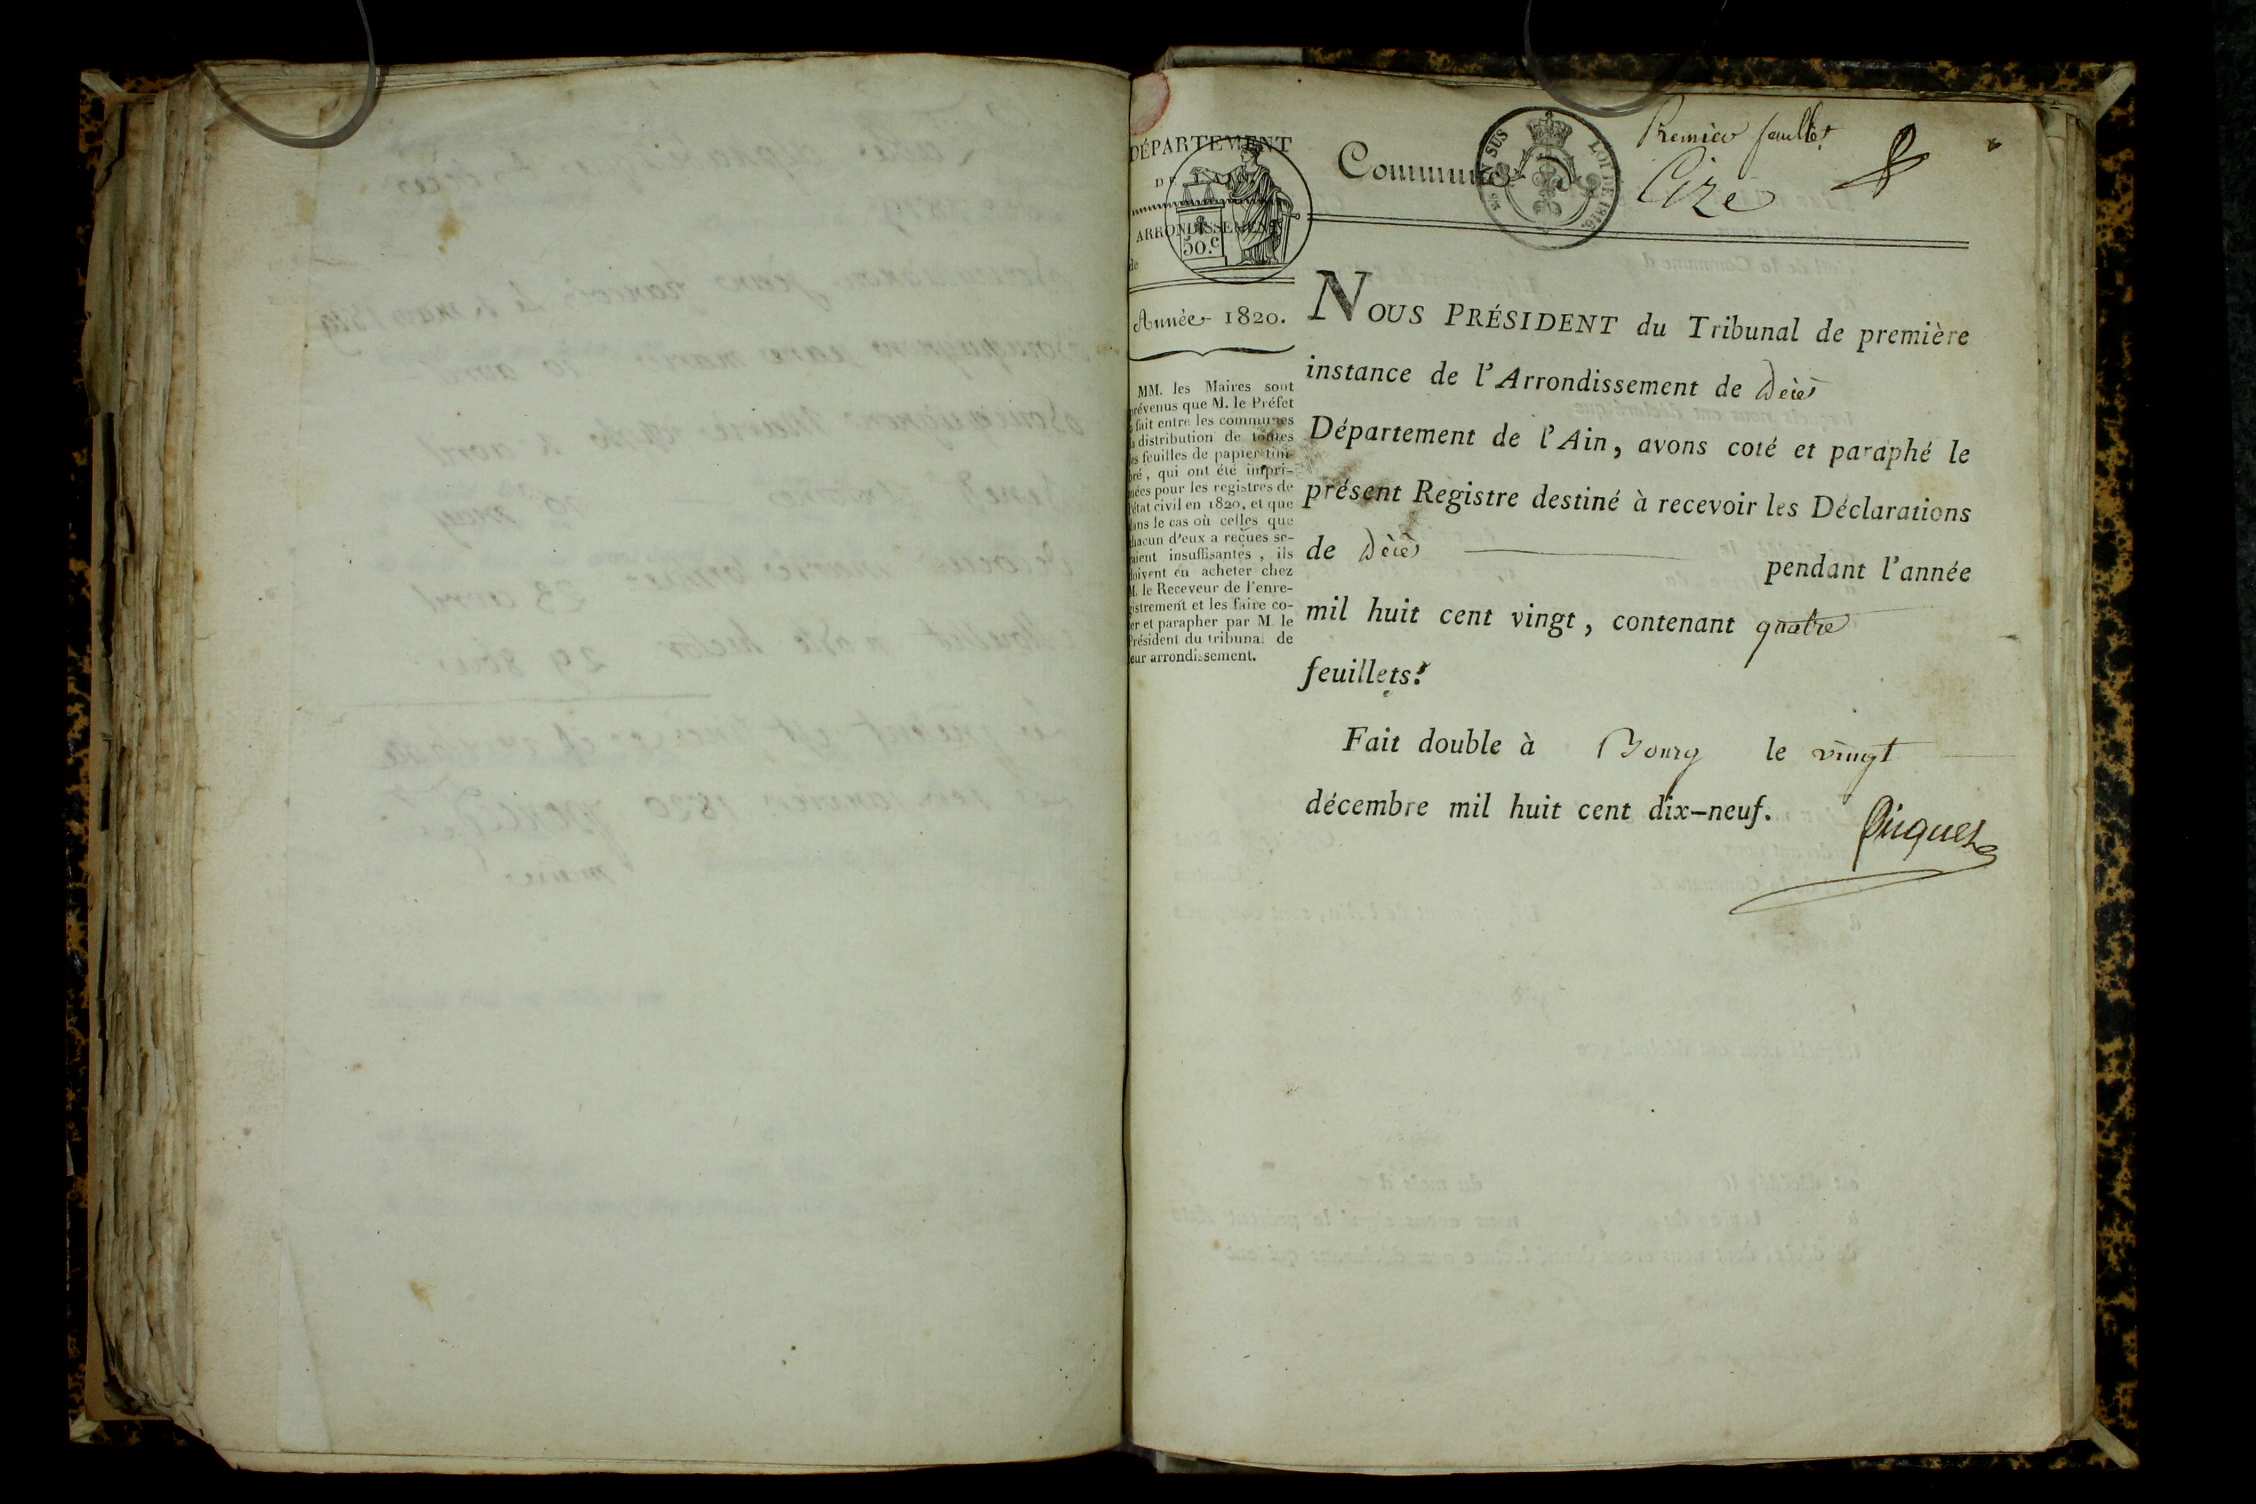 Premier feuillet
DÉPARTEMENT
DE L'AIN
ARRONDISSEMENT
de
50.c
Année 1820.
MM. les Maires sont
prévenus que M. le Préfet
a fait entre les communes
la distribution de toutes
les feuilles de papier tim-
bré, qui ont été impri-
mées pour les registres de
l'état civil en 1820, et que
dans le cas où celles que
chacun d'eux a reçues se-
raient insuffisantes, ils
doivent en acheter chez
M. le Receveur de l'enre-
gistrement et les faire co-
ter et parapher par M. le
Président du tribunal de
leur arrondissement.
Commune Cize
EN SUS
LOI DE 1816.
NOUS PRÉSIDENT du Tribunal de première
instance de l'Arrondissement de Décès
Département de l'Ain, avons coté et paraphé le
présent Registre destiné à recevoir les Déclarations
de Décès pendant l'année
mil huit cent vingt, contenant quatre
feuillets.
Fait double à Bourg le vingt
décembre mil huit cent dix-neuf.